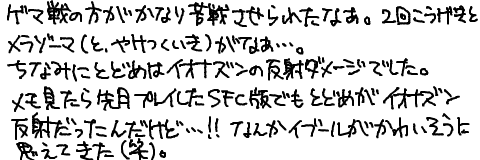 ゲマ戦の方がかなり苦戦させられたなぁ。2回こうげきと
メラゾーマ(と、やけつくいき)がなぁ…。
ちなみにとどめはイオナズンの反射ダメージでした。
メモ見たら先月プレイしたSFC版でもとどめがイオナズン
反射だったんだけど…!! なんかイブールがかわいそうに
思えてきた(笑)。